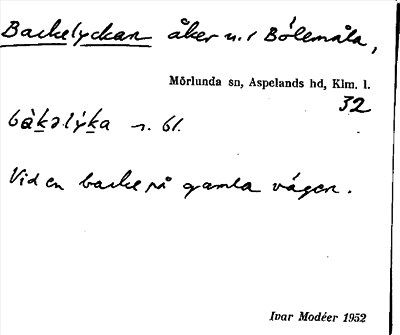 Backelyckan åker n.r Bölemåla,
Mörlunda sn, Aspelands hd, Klm. l.
32
bàkəlýka n. bl.
Vid en backe på gamla vägen.
Ivar Modéer 1952